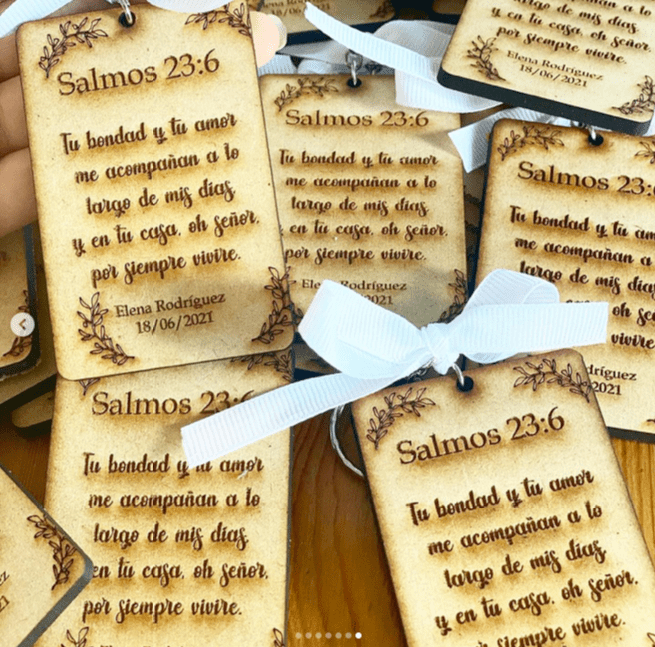 18/06/2021
Salmos 23:6
Tu bondad y tu amor
me acompañan a lo
largo de mis días,
y en tu casa, oh señor,
por siempre vivire.
Elena Rodríguez
18/06/2021
Salmos 23:6
Tu bondad y tu amor
me acompañan a lo
largo de mis días,
y en tu casa, oh señor,
por siempre vivire.
Elena Rodríguez
2021
Tu bondad y tu amor
me acompañan a lo
largo de mis días,
y en tu casa, oh señor,
por siempre vivire.
Elena Rodríguez
18/06/2021
Salmos 23:6
Tu bondad
me acompañan a
largo de mis días
oh señor
vivire
dríguez
2021
Salmos 23:6
Tu bondad y tu amor
me acompañan a lo
largo de mis días,
en tu casa, oh señor,
por siempre vivire.
Salmos 23:6
Tu bondad y tu amor
me acompañan a lo
largo de mis días,
y en tu casa, oh señor,
por siempre vivire.